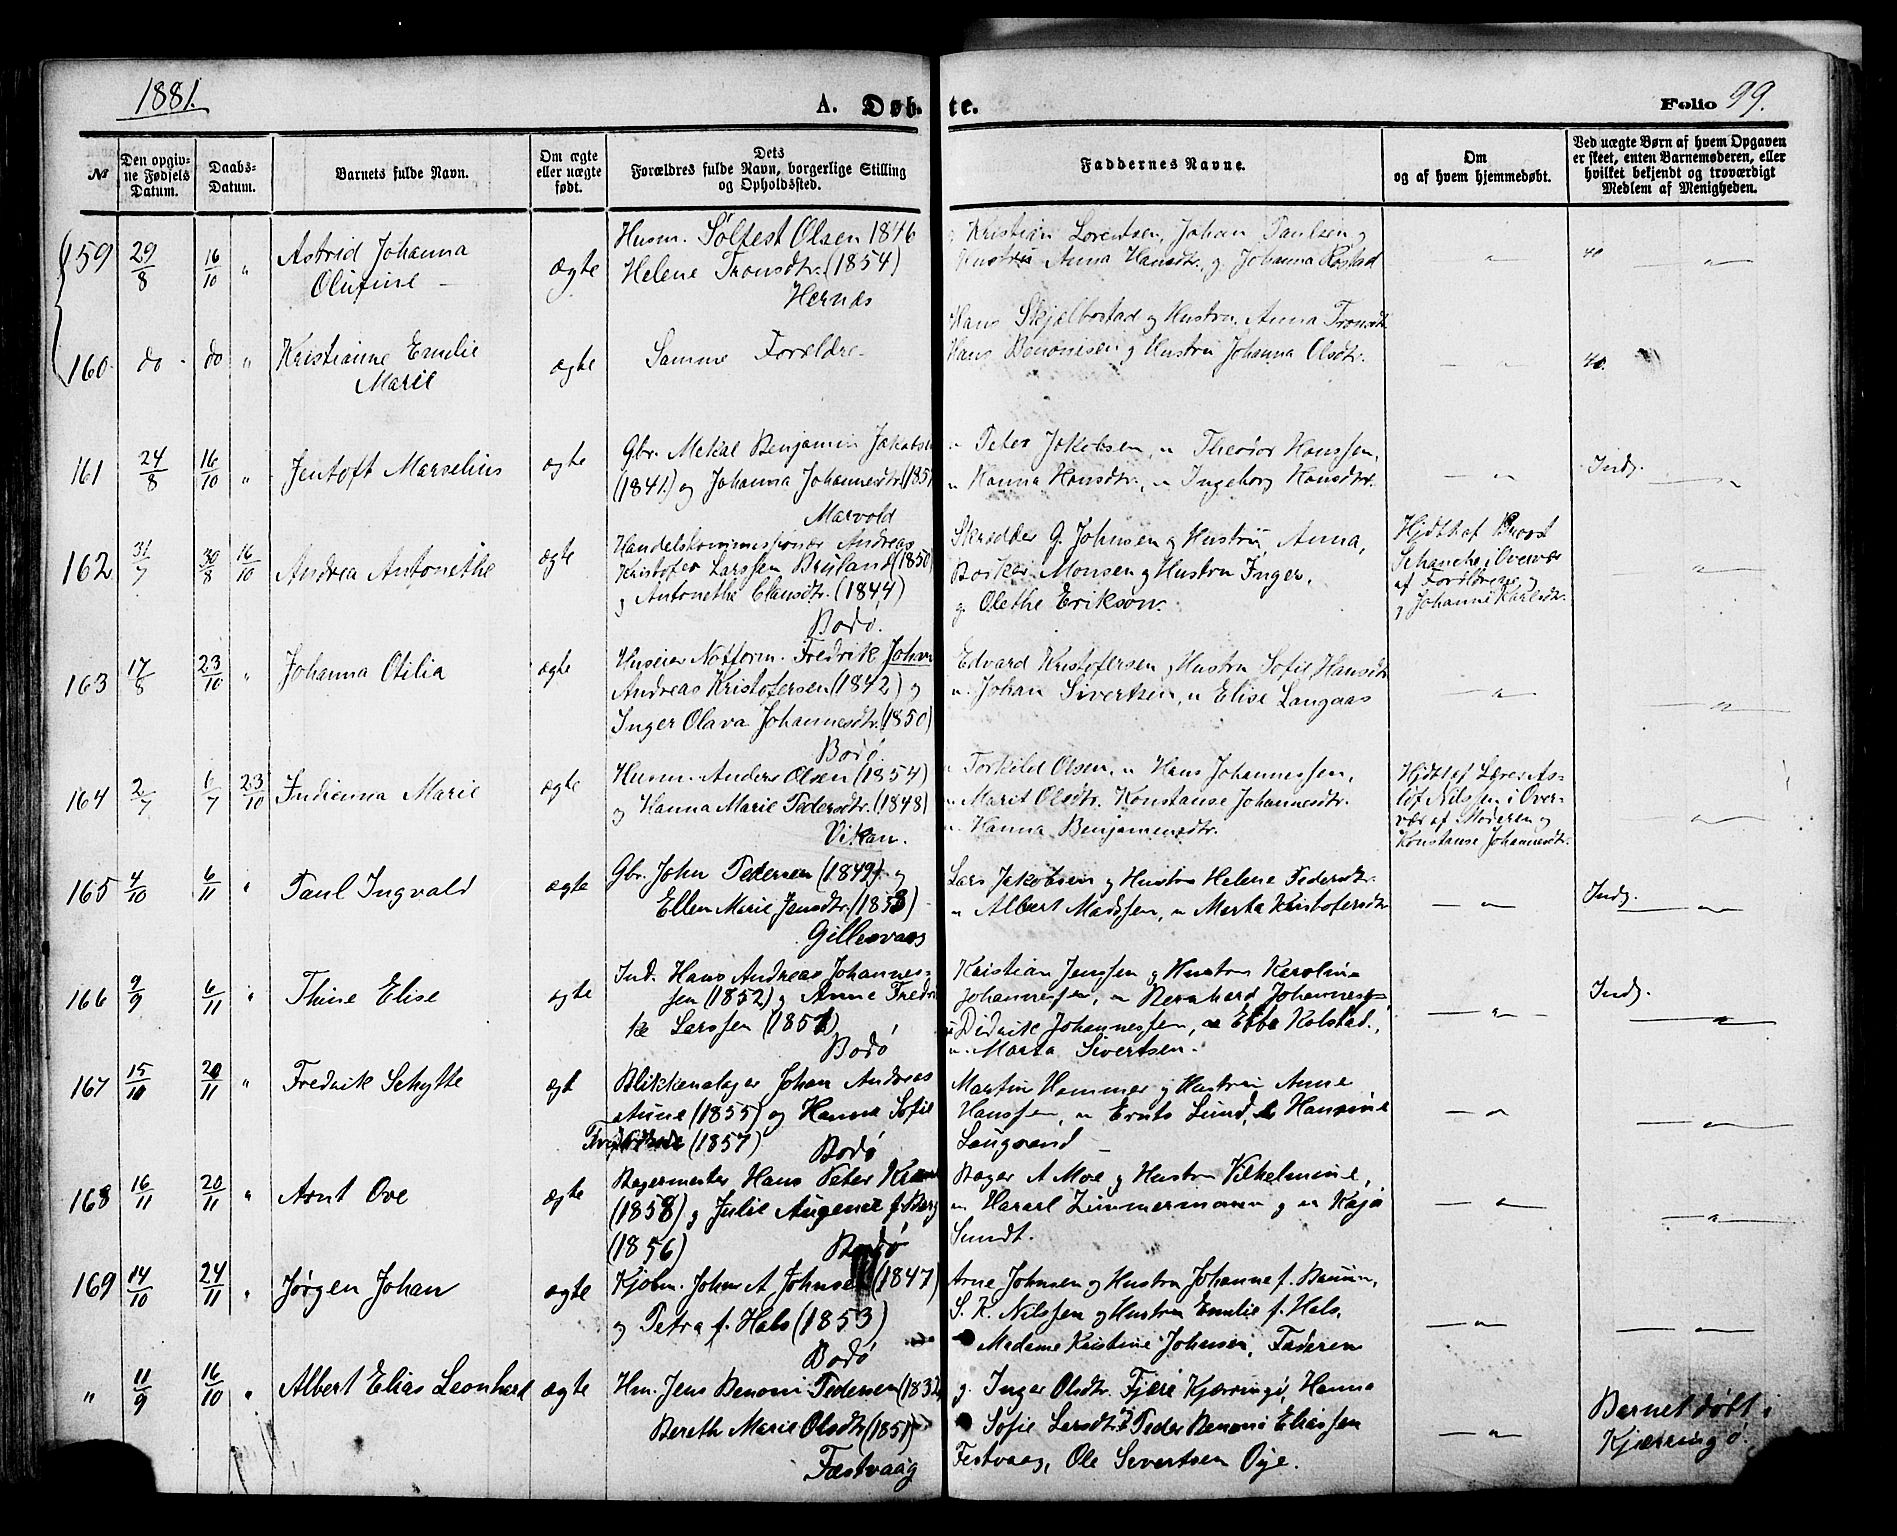 1881.
A. Døbte.
Folio 99.
№
Den opgivne Fødsels Datum.
Daabs-Datum.
Barnets fulde Navn.
Om ægte eller uægte født.
Dets Forældres fulde Navn, borgerlige Stilling og Opholdssted.
Faddernes Navne.
Om og af hvem hjemmedøbt.
Ved uægte Børn af hvem Opgaven er skeet, enten Barnemoderen, eller hvilket bekjendt og troværdigt Medlem af Menigheden.
159 29/8 16/10 "
Astrid Johanna
Olufine
ægte
Husm. Søltest Olsen 1846
Helene Tronsdtr. (1854)
Hernæs
Kristian Lorentsen, Johan Paulsen g
Hustru Anna Hansdtr. g Johanna Rostad
— " —
40 — " —
160 do do "
Kristianne Emelie
Marie
ægte
Samme Forældre
Hans Skjelbostad g Hustru Anna Tronsdtr
Hans Benonisen g Hustru Johanna Olsdtr.
— " —
40.
161 24/8 16/10 "
Jentoft Marselius
ægte
Gbr. Mekal Benjamin Jakobsen
(1841) og Johanna Johannesdtr. (185
Marvold
" Peter Jakobsen, " Theodor Hanssen,
" Hanna Hansdtr., " Ingeborg Hansdtr.
— " —
Indg. — " —
162 31/7 30/8 16/10
Andrea Antonethe
ægte
Handelskommissionær Andreas
Kristofer Larssen Bryland (1850)
g Antonethe Clausdtr. (1844)
Bodø.
Skrædder G. Johnsen g Hustru Anna,
Monsen g Hustru Inger,
g. Olethe Erikson.
Hjdtb af Provst
Schanche i Overvær
af Forældrene g
g Johanne Karlsdtr.
— " —
163 17/8 23/10 "
Johanna Otilia
ægte
Huseier Notform. Fredrik Johan
Andreas Kristofersen (1842) g
Inger Olava Johannesdtr. (1850)
Bodø.
Edvard Kristofersen g Hustru Sofie Hansdtr
" Johan Sivertsen, " Elise Langaas
— " —
— " —
164 2/7 6/7 23/10
Indianna Marie
ægte
Husm. Anders Olsen (1854)
g Hanna Marie Pedersdtr. (1848)
Vikan.
" Torkild Olsen, " Hans Johannessen,
" Marit Olsdtr. Konstanse Johannesdtr.
" Hanna Benjaminsdtr.
Hjdt af Lærer As-
lof Nilssen i Over-
vær af Moderen g
Konstanse Johannesdtr.
— " —
165 4/10 6/11 "
Paul Ingvald
ægte
Gbr. John Pedersen (1849) g
Ellen Marie Jensdtr. (1853)
Gillesvaag
Lars Jakobsen g Hustru Helene Pedersdtr.
" Albert Madssen, " Marta Kristofersdtr
— " —
Indg. — " —
166 9/9 6/11 "
Thine Elise
ægte
Ind. Hans Andreas Johannes-
sen (1852) g Anne Fredri
ke Larssen (1851)
Bodø
Kristian Jenssen g Hustru Karoline
Johannessen, " Bernhard Johannesen
" Didrik Johannessen, " Ebba Kolstad,
" Marta Sivertsen.
— " —
Indg. — " —
167 15/10 20/11 "
Fredrik Schytte
ægt
Blikkenslager Johan Andreas
Aune (1855) og Hanna Sofie
(1857) Bodø
Martin Hammer g Hustru Anne
Hanssen, " Ernts Lund, & Hansine
Langstrand
— " —
— " —
168 16/11 20/11 "
Arnt Ove
ægte
Bagermester Hans Peter
(1858) g Julie Augenie f. Berg
(1856) Bodø
Bager A Moe g Hustru Vilhelmine,
" Hararl Zimmermann g " Kaja
Sundt.
— " —
— " —
169 14/10 24/11 "
Jørgen Johan
ægte
Kjøbm. Johan A Johnsen (1847)
g Petra f. Hals (1853)
Bodø
Arne Johnsen og Hustru Johanne f. Bruun,
S. K. Nilssen g Hustru Emelie f. Hals,
Madame Kristine Johnsen, Faderen
— " —
— " —
" 11/9 16/10 "
Albert Elias Leonhard
ægte
Hm. Jens Benoni Pedersen (1832)
Bereth Marie Olsdtr. (1851)
Fæstvaag
g. Inger Olsdtr. Fjære Kjærringø, Hanna
Sofie Larsdtr. Peder Benoni Eliassen
Festvaag, Ole Sivertsen Øye.
— " —
Barnet døbt i
Kjærringø.